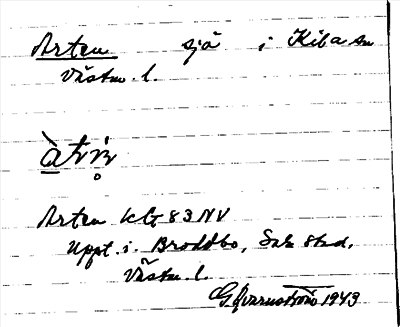 Arten sjö i Kila sn
Västm. l.
àtṇ̀
Arten kbl 83 NV
Uppt. i Broddbo, Sala stad,
Västm. l.
G. Qvarnström 1943